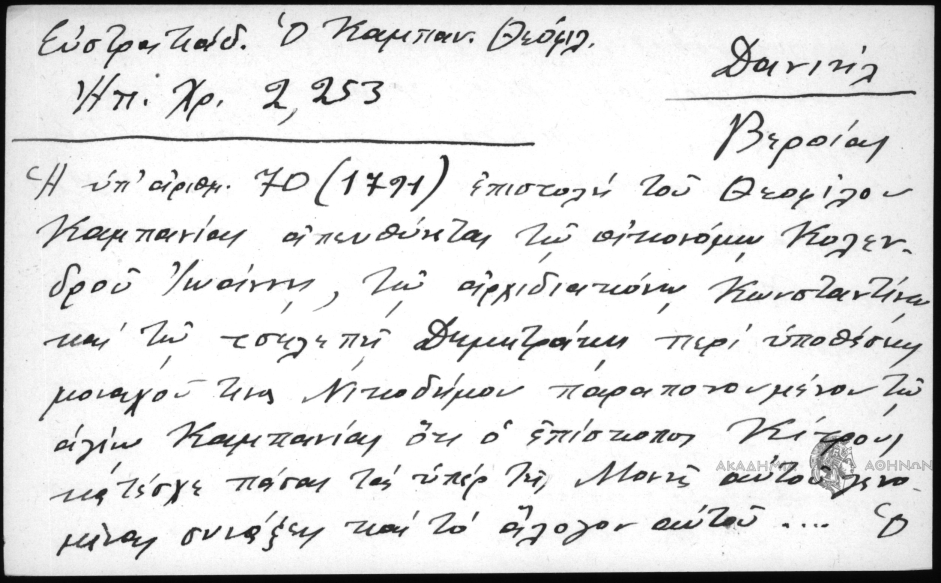 Εὐστρατιάδ. Ὁ Καμπαν. Θεόφιλ.
Ἠπ. Χρ. 2, 253
Δανιὴλ
Βεροίας
Ἡ ὑπ' ἀριθμ. 70 (1791) ἐπιστολὴ τοῦ Θεοφίλου
Καμπανίας ἀπευθύνεται τῷ οἰκονόμῳ Κολεν-
δροῦ Ἰωάννῃ, τῷ ἀρχιδιακόνῳ Κωνσταντίνῳ
καὶ τῷ τσελεπῇ Δημητράκῃ περὶ ὑποθέσεως
μοναχοῦ τινος Νικοδήμου παραπονουμένου τῷ
ἁγίῳ Καμπανίας ὅτι ὁ ἐπίσκοπος Κίτρους
κατέσχε πάσας τὰς ὑπὲρ τῆς Μονῆς αὐτοῦ γενο-
μένας συνάξεις καὶ τὸ ἄλογον αὐτοῦ .... Ὁ
ΑΚΑΔΗΜΙΑ ΑΘΗΝΩΝ